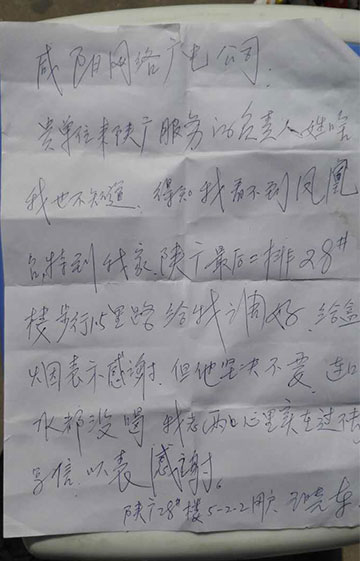 咸阳网络广电公司.
贵单位来陕广服务的负责人姓啥
我也不知道.得知我看不到凤凰
台特到我家.陕广最后二排28#
楼步行1.5里路给我调好.给盒
烟表示感谢.但他坚决不要.连口
水都没喝.我老两口心里实在过不去
写信以表感谢。
陕广28#楼5-2-2用户.